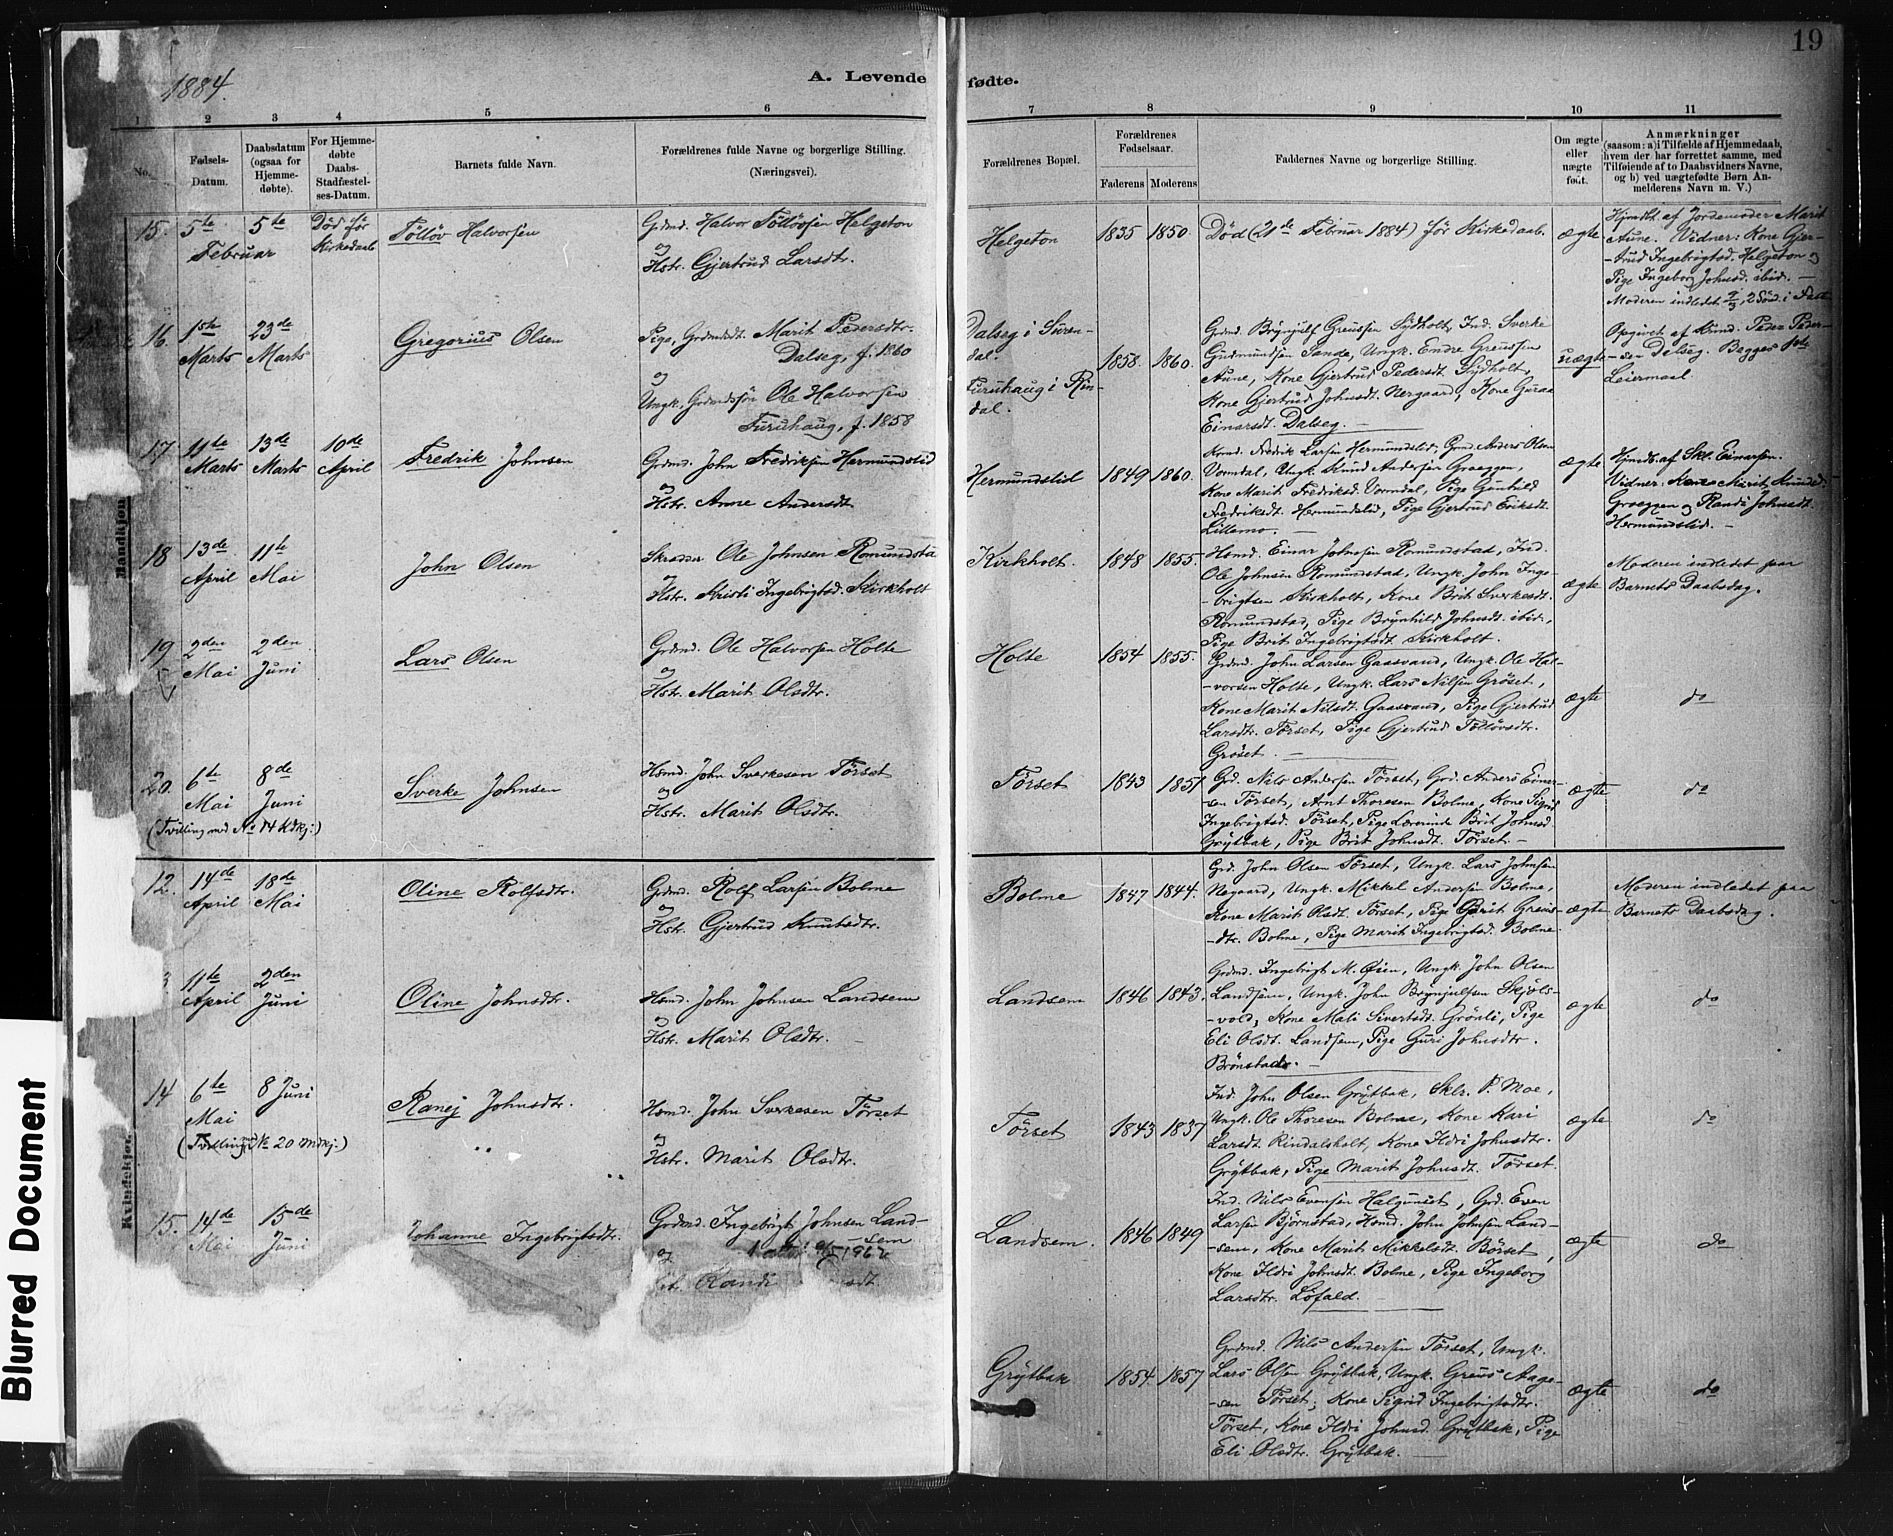 19
1884.
A. Levende fødte.
1 2 3 4 5 6 7 8 9 10 11
No. Fødsels-Datum. Daabsdatum (ogsaa for Hjemmedøbte). For Hjemmedøbte Daabs-Stadfæstelses-Datum. Barnets fulde Navn. Forældrenes fulde Navne og borgerlige Stilling. (Næringsvei). Forældrenes Bopæl. Forældrenes Fødselsaar. Faderens Moderens Faddernes Navne og borgerlige Stilling. Om ægte eller uægte født. Anmærkninger (saasom: a) i Tilfælde af Hjemmedaab, hvem der har forrettet samme, med Tilføiende af to Daabsvidners Navne, og b) ved uægtefødte Børn Anmelderens Navn m. V.)
Mandkjøn
15. 5te Februar 5te Død før Kirkedaab
Töllöv Halvorsen
Grdmd. Halvor Töllövsen Helgeton
og
Hstr. Gjertrud Larsdtr.
Helgeton 1835 1850
Død (21de Februar 1884) før Kirkedaab.
ægte
Hjmdbt. af Jordemoder Marit
Aune. Vidner: Kone Gjer-
-trud Ingebrigtsd. Helgeton og
Pige Ingeborg Johnsd. ibid. —
Moderen indledet
16. 1ste Marts 23de Marts
Gregorius Olsen
Pige, Grdmdsdt. Marit Pedersdtr.
Dalseg, f. 1860
og
Ungk. Grdmdssön Ole Halvorsen
Furuhaug, f. 1858
Dalseg i Suren-
dal.
Furuhaug i Rin-
dal.
1858. 1860.
Grdmd. Brynjulf Greussen Sydholt, Ind. Sverke
Gudmundsen Sande, Ungk. Endre Greussen
Aune, Kone Gjertrud Pedersdt. Sydholt,
Kone Gjertrud Johnsdt. Nergaard, Kone Guraa
Einarsdt. Dalseg. —
uægte
Opgivet af Peder Peder-
-sen Dalseg. Begges 1ste
Leiermaal.
17 11te Marts 13de Marts 10de April
Fredrik Johnsen
Grdmd. John Fredriksen Hermundslid
og
Hstr. Anne Andersdt.
Hermundslid 1849 1860.
Fredrik Larsen Hermundslid, Grmd. Anders Olsen
Vormdal, Ungk. Knud Andersen Graeggen,
Kone Marit Fredriksd. Vormdal, Pige Gunhild
Fredriksdt. Hermundslid, Pige Gjertrud Eriksdt.
Lillemo. —
ægte
Hjmdb. af Skl. Einarsen.
Vidner: Kone Marit Knudsd.
Graeggen og Randi Johnsdt.
Hermundslid. —
18 13de April 11te Mai
John Olsen
Skrædder Ole Johnsen Romundsta
og
Hstr. Kristi Ingebrigtsd. Kirkholt
Kirkholt. 1848 1855.
Husmd. Einar Johnsen Romundstad, Ind.
Ole Johnsen Romundstad, Ungk. John Inge-
-brigtsen Kirkholt, Kone Brit Sverkesdt.
Romundstad, Pige Brynhild Johnsdt. ibid.,
Pige Brit Ingebrigtsdt. Kirkholt.
ægte
Moderen indledet paa
Barnets Daabsdag.
19 2den Mai 2den Juni
Lars Olsen
Grdmd. Ole Halvorsen Holte
og
Hstr. Marit Olsdtr.
Holte 1854 1855.
Grdmd. John Larsen Gaasvand, Ungk. Ole Hal-
-vorsen Holte, Ungk. Lars Nilsen Gröset,
Kone Marit Nilsdt. Gaasvand, Pige Gjertrud
Larsdtr. Törset, Pige Gjertrud Töllövsdtr.
Gröset. —
ægte
do
20. 6te Mai 8de Juni
(Tvilling med No 14 Kdkj:)
Sverke Johnsen
Hsmd. John Sverkesen Törset
og
Hstr. Marit Olsdtr.
Törset 1843 1851
Grd. Nils Andersen Törset, Grd. Anders Einer-
-sen Törset, Arnt Thoresen Bolme, Kone Sigrid
Ingebrigtsd. Törset, Pige Lærerinde Brit Johnsd.
Grytbak, Pige Brit Johnsdt. Törset. —
ægte
do
Kvindekjøn
12. 14de April 18de Mai
Oline Rolfsdtr.
Grdmd. Rolf Larsen Bolme
og
Hstr. Gjertrud Knutsdtr.
Bolme 1847 1844.
Grd. John Olsen Törset, Ungk. Lars Johnsen
Negaard, Ungk. Mikkel Andersen Bolme,
Kone Marit Olsdt. Törset, Pige Berit Greus-
-dtr. Bolme, Pige Marit Ingebrigtsd. Bolme.
ægte
Moderen indledet paa
Barnets Daabsdag.
3 11te April 2den Juni
Oline Johnsdtr.
Hsmd. John Johnsen Landsem
og
Hstr. Marit Olsdtr.
Landsem 1846 1843.
Grdmd. Ingebrigt M. Øien, Ungk. John Olsen
Landsem, Ungk. John Brynjulfsen Skjöls-
-vold, Kone Mali Sivertsdt. Grönli, Pige
Eli Olsdt. Landsem, Pige Guri Johnsdtr.
Brönstad. —
ægte
do
14 6te Mai 8 Juni
(Tvilling med No 20 Mdkj:)
Ranej Johnsdtr.
Hsmd. John Sverkesen Törset
og
Hstr. Marit Olsdtr.
Törset 1843 1837
Ind. John Olsen Grytbak, Sklr. P. Moe,
Ungk. Ole Thoresen Bolme, Kone Kari
Larsdt. Rindalsholt, Kone Ildri Johnsdtr.
Grytbak, Pige Marit Johnsdt. Törset.
ægte
do
15. 14de Mai 15de Juni
Johanne Ingebrigtsdtr.
Grdmd. Ingebrigt Johnsen Land-
-sem
og
Randi sdt.
Landsem. 1846 1849
Ind. Nils Evensen Halgunset, Grd. Even
Larsen Björnstad, Hsmd. John Johnsen Land-
-sem, Kone Marit Mikkelsdt. Börset,
Kone Ildri Johnsdt. Bolme, Pige Ingeborg
Larsdtr. Löfald.
ægte
do
Grytbak 1854 1857
Grdmd. Nils Andersen Törset, Ungk.
Lars Olsen Grytbak, Ungk. Greus Aage-
-sen Törset, Kone Sigrid Ingebrigtsdtr.
Törset, Kone Ildri Johnsd. Grytbak, Pige
Eli Olsdtr. Grytbak. —
ægte
do
Blurred Document